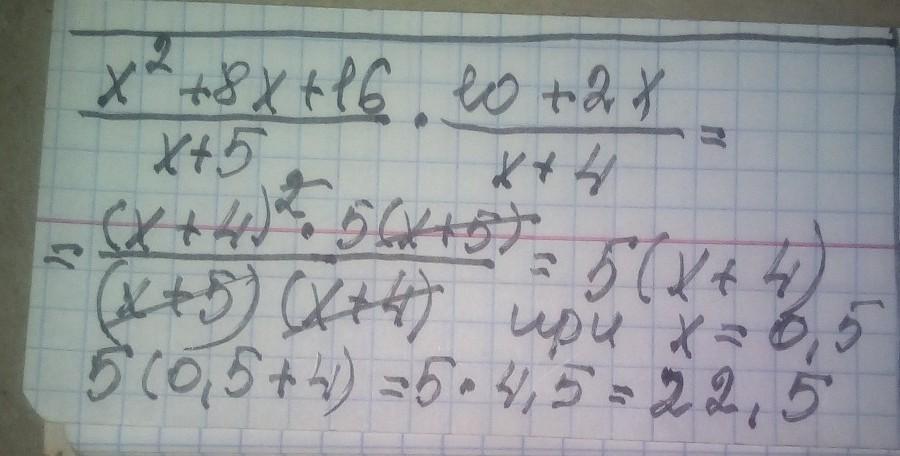 (x² + 8x + 16)/(x + 5) · (10 + 2x)/(x + 4) =
= ((x + 4)² · 5(x + 5))/((x + 5)(x + 4)) = 5(x + 4)
при x = 0,5
5(0,5 + 4) = 5 · 4,5 = 22,5